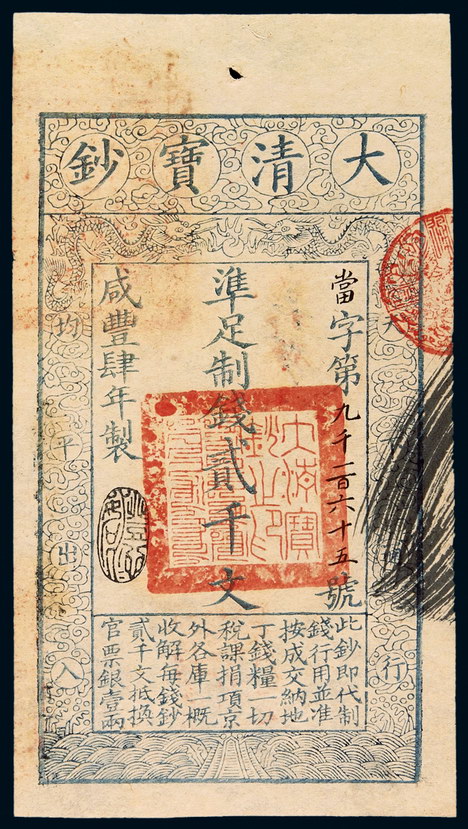 大清寶鈔
當字第九千一百六十五號
準足制錢貳千文
咸豐肆年製
行
均平出入
大清寶鈔之印
此鈔即代制
錢行用並准
按成交納地
丁錢糧一切
稅課捐項京
外各庫一概
收解每錢鈔
貳千文抵換
官票銀壹兩